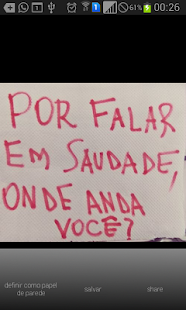 00:26
POR FALAR
EM SAUDADE,
ONDE ANDA
VOCÊ?
definir como papel
de parede
salvar
share